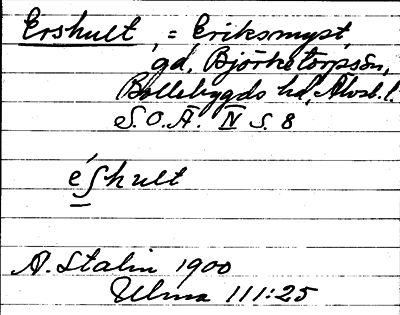 Ershult, = Eriksmyst,
gd, Björketorpssn,
Bollebygds hd, Älvsb. l.
S.O.Ä. IV S. 8
é∫hult
A. Stalin 1900
Ulma 111:25